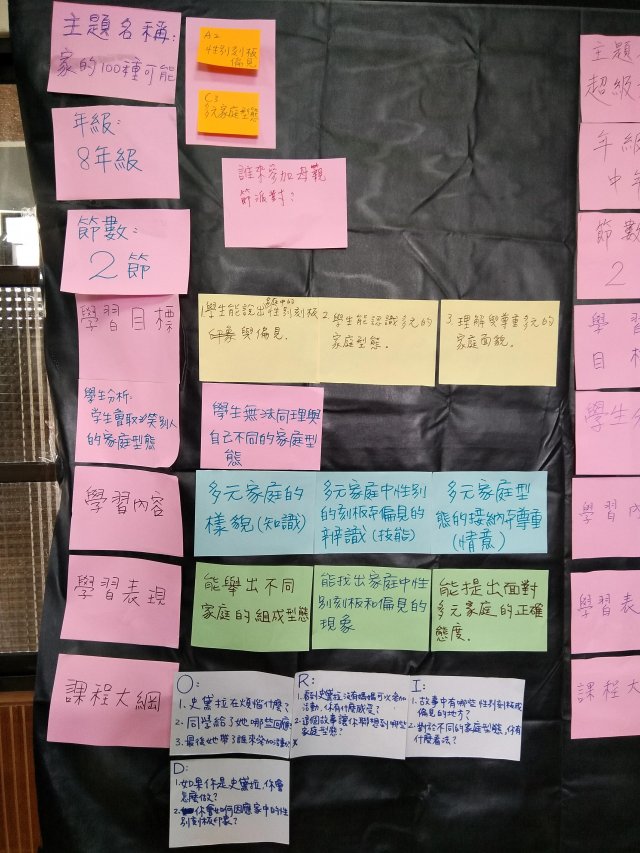 主題名稱:
家的100種可能
A2
性別刻板
偏見
C3
多元家庭型態
年級:
8年級
誰來參加母親
節派對?
節數:
2節
學習目標
1.學生能說出家庭中的性別刻板
印象與偏見.
2.學生能認識多元的
家庭型態.
3.理解與尊重多元的
家庭面貌.
學生分析:
學生會取笑別人
的家庭型態
學生無法同理與
自己不同的家庭型
態
學習內容
多元家庭的
樣貌(知識)
多元家庭中性別
的刻板和偏見的
辨識(技能)
多元家庭型
態的接納和尊重
(情意)
學習表現
能舉出不同
家庭的組成型態
能找出家庭中性
別刻板和偏見的
現象
能提出面對
多元家庭的正確
態度.
課程大綱
O:
1.史黛拉在煩惱什麼?
2.同學給了她哪些回應?
3.最後她帶了誰來參加活動?
R:
1.看到史黛拉沒有媽媽可以參加
活動,你有什麼感受?
2.這個故事讓你聯想到哪些
家庭型態?
I:
1.故事中有哪些性別刻板或
偏見的地方?
2.對於不同的家庭型態,你有
什麼看法?
D:
1.如果你是史黛拉,你會
怎麼做?
2.你會如何因應家中的性
別刻板印象?
主題
超級
年級
中年
節數
2
學習
目標
學生分
學習內
學習表
課程大